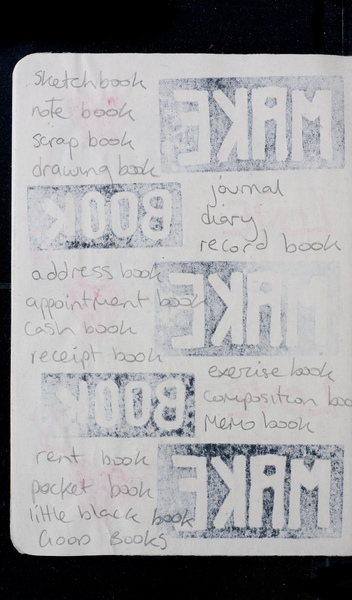 sketchbook
note book
scrap book
drawing book
MAKE
BOOK
journal
diary
record book
address book
appointment book
cash book
receipt book
MAKE
BOOK
exercise book
composition boo
Memo book
rent book
pocket book
little black book
Good Books
MAKE